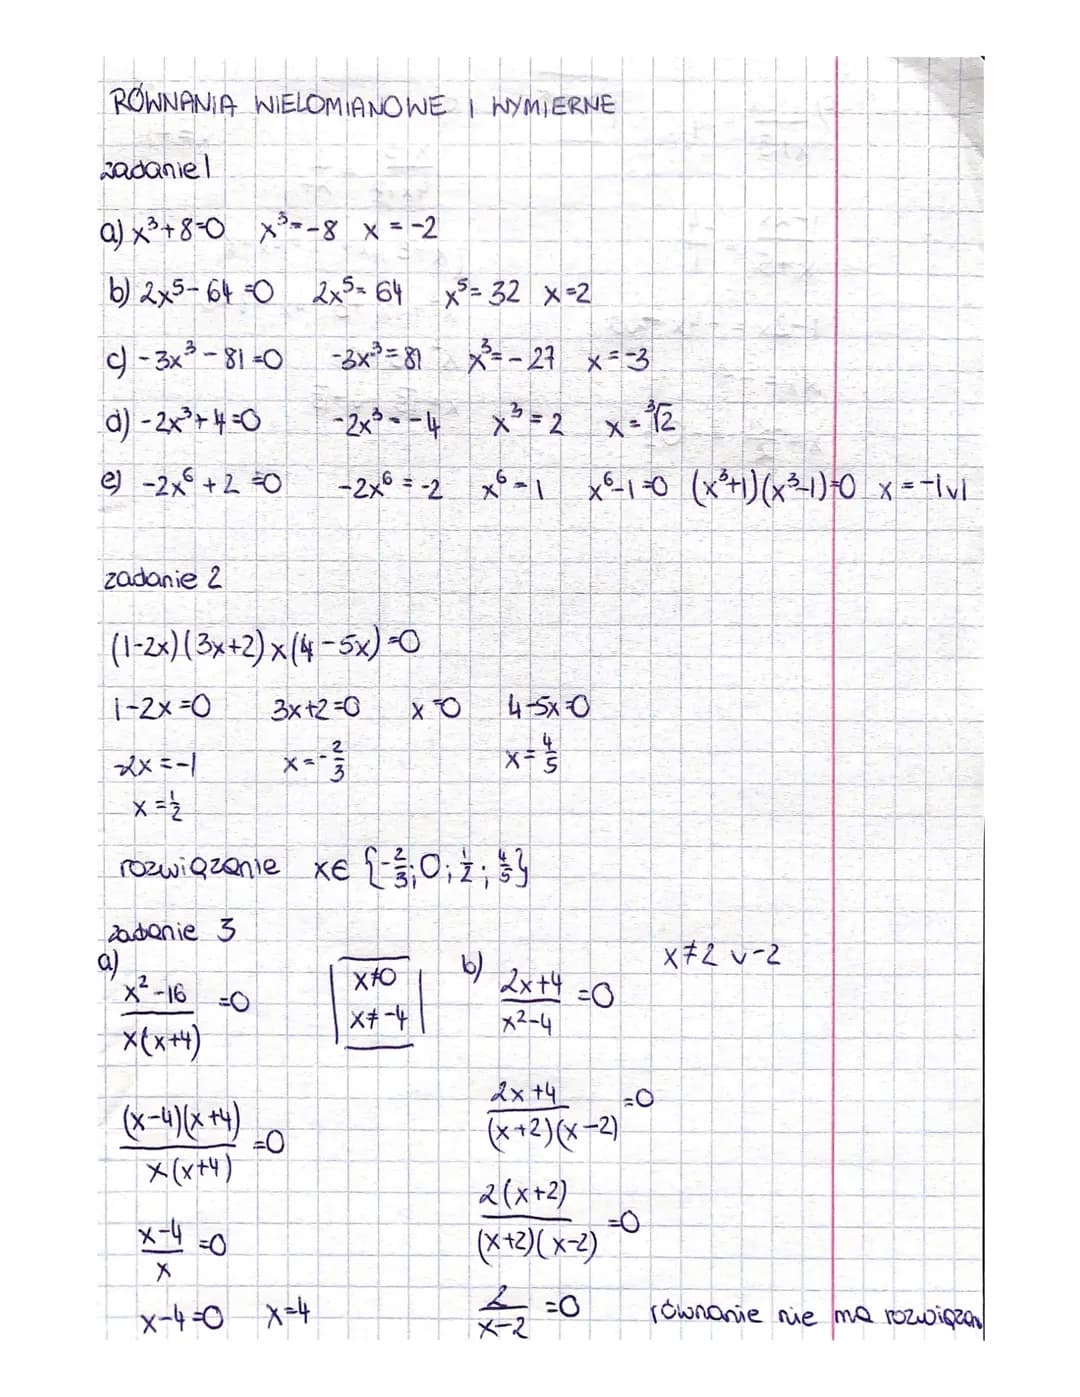 RÓWNANIA WIELOMIANOWE I WYMIERNE
zadanie 1
a) x³+8=0 x³=-8 x=-2
b) 2x⁵-64=0 2x⁵=64 x⁵=32 x=2
c) -3x³-81=0 -3x³=81 x³=-27 x=-3
d) -2x³+4=0 -2x³=-4 x³=2 x=³√2
e) -2x⁶+2=0 -2x⁶=-2 x⁶=1 x⁶-1=0 (x³+1)(x³-1)=0 x=-1∨1
zadanie 2
(1-2x)(3x+2)x(4-5x)=0
1-2x=0 3x+2=0 x=0 4-5x=0
-2x=-1 x=-2/3 x=4/5
x=1/2
rozwiązanie x∈{-2/3;0;1/2;4/5}
zadanie 3
a)
x²-16 / x(x+4) =0
x≠0
x≠-4
(x-4)(x+4) / x(x+4) =0
x-4 / x =0
x-4=0 x=4
b) 2x+4 / x²-4 =0 x≠2 ∨ -2
2x+4 / (x+2)(x-2) =0
2(x+2) / (x+2)(x-2) =0
2 / x-2 =0 równanie nie ma rozwiązan